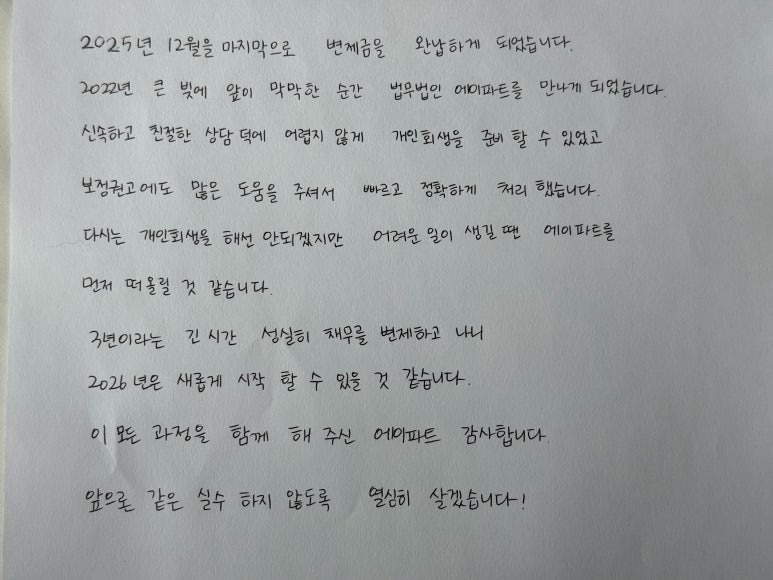 2025년 12월을 마지막으로 변제금을 완납하게 되었습니다.
2022년 큰 빚에 앞이 막막한 순간 법무법인 에이파트를 만나게 되었습니다.
신속하고 친절한 상담 덕에 어렵지 않게 개인회생을 준비 할 수 있었고
보정권고에도 많은 도움을 주셔서 빠르고 정확하게 처리 했습니다.
다시는 개인회생을 해선 안되겠지만 어려운 일이 생길 땐 에이파트를
먼저 떠올릴 것 같습니다.
3년이라는 긴 시간 성실히 채무를 변제하고 나니
2026년은 새롭게 시작 할 수 있을 것 같습니다.
이 모든 과정을 함께 해 주신 에이파트 감사합니다.
앞으로 같은 실수 하지 않도록 열심히 살겠습니다!